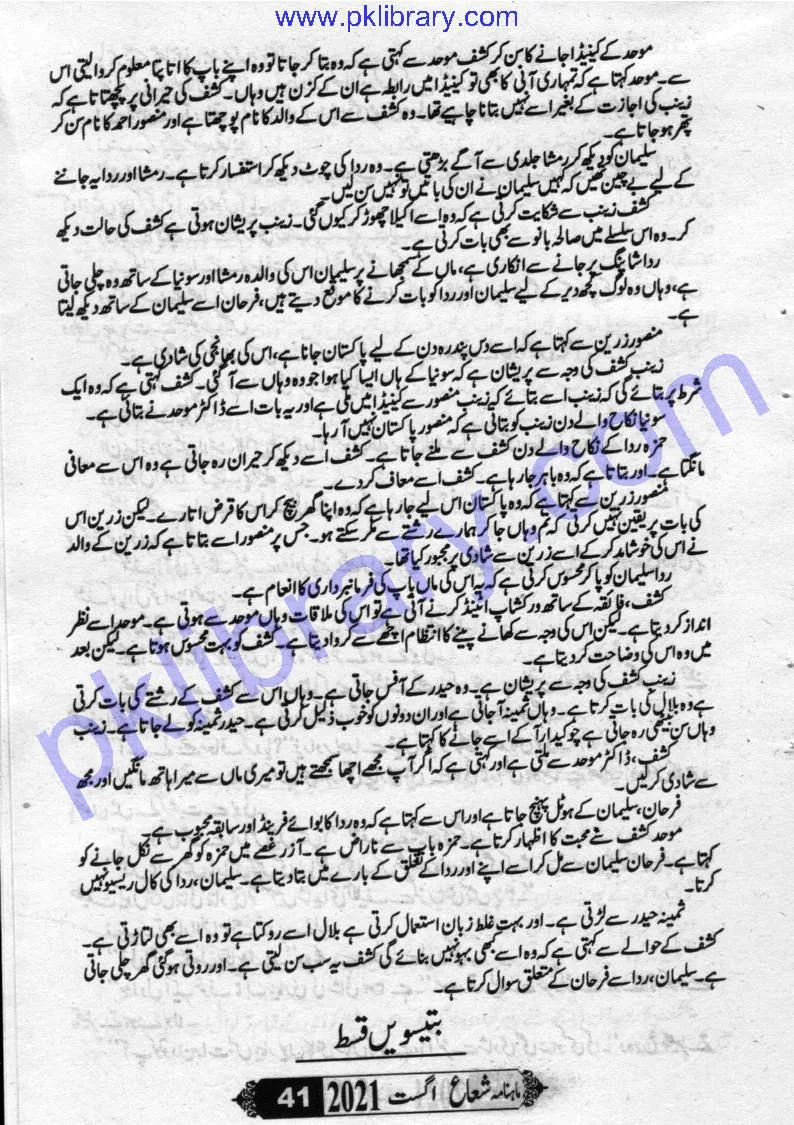 www.pklibrary.com
موحد کے کینیڈا جانے کا سن کر کشف موحد سے کہتی ہے کہ وہ بتا کر جاتا تو وہ اپنے باپ کا اتا پتا معلوم کروا لیتی اس
سے۔ موحد کہتا ہے کہ تمہاری آنی کا بھی تو کینیڈا میں رابطہ ہے ان کے کزن ہیں وہاں۔ کشف کی حیرانی پر پچھتاتا ہے کہ
زینب کی اجازت کے بغیر اسے نہیں بتانا چاہیے تھا۔ وہ کشف سے اس کے والد کا نام پوچھتا ہے اور منصور احمد کا نام سن کر
پتھر ہو جاتا ہے۔
سلیمان کو دیکھ کر رمشا جلدی سے آگے بڑھتی ہے۔ وہ ردا کی چوٹ دیکھ کر استفسار کرتا ہے۔ رمشا اور ردا یہ جاننے
کے لیے بے چین تھیں کہ کہیں سلیمان نے ان کی باتیں تو نہیں سن لیں۔
کشف زینب سے شکایت کرتی ہے کہ وہ اسے اکیلا چھوڑ کر کیوں گئی۔ زینب پریشان ہوتی ہے کشف کی حالت دیکھ
کر۔ وہ اس سلسلے میں صالحہ بانو سے بھی بات کرتی ہے۔
ردا شاپنگ پر جانے سے انکاری ہے، ماں کے سمجھانے پر سلیمان اس کی والدہ رمشا اور سونیا کے ساتھ وہ چلی جاتی
ہے، وہاں وہ لوگ کچھ دیر کے لیے سلیمان اور ردا کو بات کرنے کا موقع دیتے ہیں، فرحان اسے سلیمان کے ساتھ دیکھ لیتا
ہے۔
منصور زرین سے کہتا ہے کہ اسے دس پندرہ دن کے لیے پاکستان جانا ہے، اس کی بھانجی کی شادی ہے۔
زینب کشف کی وجہ سے پریشان ہے کہ سونیا کے ہاں ایسا کیا ہوا جو وہ وہاں سے آ گئی۔ کشف کہتی ہے کہ وہ ایک
شرط پر بتائے گی کہ زینب اسے بتائے کہ زینب منصور سے کینیڈا میں ملی ہے اور یہ بات اسے ڈاکٹر موحد نے بتائی ہے۔
سونیا نکاح والے دن زینب کو بتاتی ہے کہ منصور پاکستان نہیں آ رہا۔
حمزہ ردا کے نکاح والے دن کشف سے ملنے جاتا ہے۔ کشف اسے دیکھ کر حیران رہ جاتی ہے وہ اس سے معافی
مانگتا ہے۔ اور بتاتا ہے کہ وہ باہر جا رہا ہے۔ کشف اسے معاف کر دے۔
منصور زرین سے کہتا ہے کہ وہ پاکستان اس لیے جا رہا ہے کہ وہ اپنا گھر بیچ کر اس کا قرض اتارے۔ لیکن زرین اس
کی بات پر یقین نہیں کرتی کہ تم وہاں جا کر ہمارے رشتے سے مکر سکتے ہو۔ جس پر منصور اسے بتاتا ہے کہ زرین کے والد
نے اس کی خوشامد کر کے اسے زرین سے شادی پر مجبور کیا تھا۔
ردا سلیمان کو پا کر محسوس کرتی ہے کہ یہ اس کی ماں باپ کی فرمانبرداری کا انعام ہے۔
کشف، فائقہ کے ساتھ ورکشاپ اٹینڈ کرنے آتی ہے تو اس کی ملاقات وہاں موحد سے ہوتی ہے۔ موحد اسے نظر
انداز کر دیتا ہے۔ لیکن اس کی وجہ سے کھانے پینے کا انتظام اچھے سے کروا دیتا ہے۔ کشف کو بہت محسوس ہوتا ہے۔ لیکن بعد
میں وہ اس کی وضاحت کر دیتا ہے۔
زینب کشف کی وجہ سے پریشان ہے۔ وہ حیدر کے آفس جاتی ہے۔ وہاں اس سے کشف کے رشتے کی بات کرتی
ہے وہ بلال کی بات کرتا ہے۔ وہاں ثمینہ آ جاتی ہے اور ان دونوں کو خوب ذلیل کرتی ہے۔ حیدر ثمینہ کو لے جاتا ہے۔ زینب
وہاں سن بیٹھی رہ جاتی ہے چوکیدار آ کے اسے جانے کا کہتا ہے۔
کشف، ڈاکٹر موحد سے ملتی ہے اور کہتی ہے کہ اگر آپ مجھے اچھا سمجھتے ہیں تو میری ماں سے میرا ہاتھ مانگیں اور مجھ
سے شادی کر لیں۔
فرحان، سلیمان کے ہوٹل پہنچ جاتا ہے اور اس سے کہتا ہے کہ وہ ردا کا بوائے فرینڈ اور سابقہ محبوب ہے۔
موحد کشف سے محبت کا اظہار کرتا ہے۔ حمزہ باپ سے ناراض ہے۔ آزر غصے میں حمزہ کو گھر سے نکل جانے کو
کہتا ہے۔ فرحان سلیمان سے مل کر اسے اپنے اور ردا کے تعلق کے بارے میں بتا دیتا ہے۔ سلیمان، ردا کی کال ریسیو نہیں
کرتا۔
ثمینہ حیدر سے لڑتی ہے۔ اور بہت غلط زبان استعمال کرتی ہے بلال اسے روکتا ہے تو وہ اسے بھی لتاڑتی ہے۔
کشف کے حوالے سے کہتی ہے کہ وہ اسے کبھی بہو نہیں بنائے گی کشف یہ سب سن لیتی ہے۔ اور روتی ہوئی گھر چلی جاتی
ہے۔ سلیمان، ردا سے فرحان کے متعلق سوال کرتا ہے۔
بتیسویں قسط
ماہنامہ شعاع اگست 2021 41
pklibrary.com